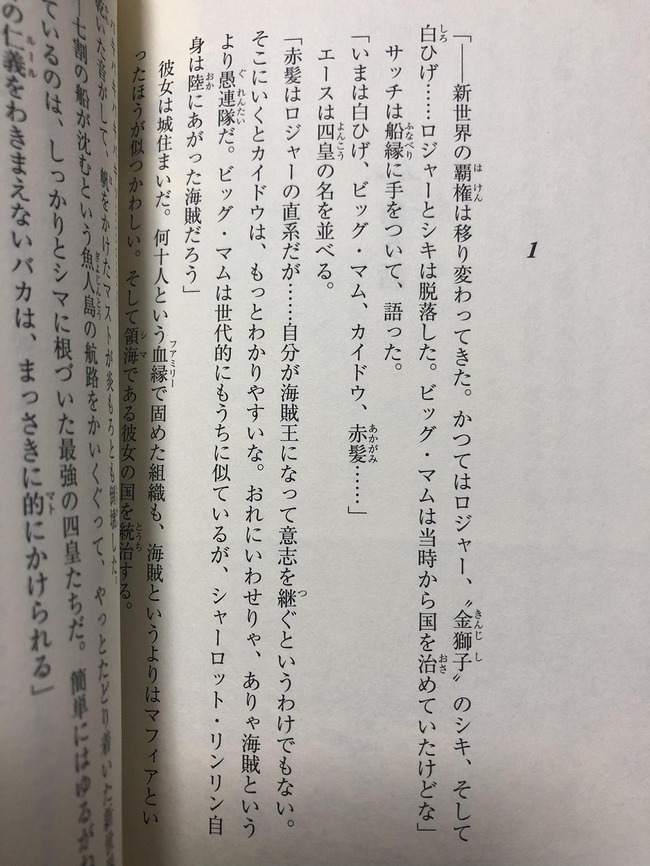 1
「――新世界の覇権は移り変わってきた。かつてはロジャー、〝金獅子〟のシキ、そして
白ひげ……ロジャーとシキは脱落した。ビッグ・マムは当時から国を治めていたけどな」
サッチは船縁に手をついて、語った。
「いまは白ひげ、ビッグ・マム、カイドウ、赤髪……」
エースは四皇の名を並べる。
「赤髪はロジャーの直系だが……自分が海賊王になって意志を継ぐというわけでもない。
そこにいくとカイドウは、もっとわかりやすいな。おれにいわせりゃ、ありゃ海賊という
より愚連隊だ。ビッグ・マムは世代的にもうちに似ているが、シャーロット・リンリン自
身は陸にあがった海賊だろう」
彼女は城住まいだ。何十人という血縁で固めた組織も、海賊というよりはマフィアとい
ったほうが似つかわしい。そして領海である彼女の国を統治する。
いた音がして、帆をかけたマストが炎もろとも倒壊した。
七割の船が沈むという魚人島の航路をかいくぐって、やっとたどり着いた
ているのは、しっかりとシマに根づいた最強の四皇たちだ。簡単にはゆるがね
の仁義をわきまえないバカは、まっさきに的にかけられる」